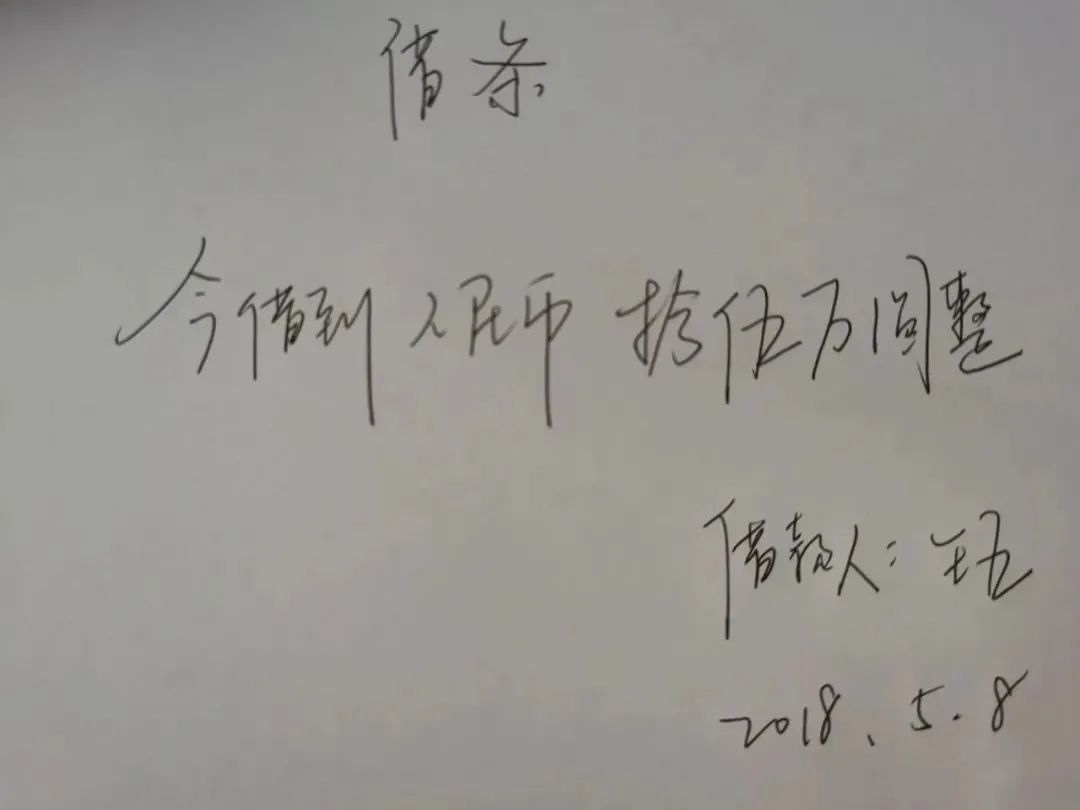 借条
今借到人民币拾伍万圆整
借款人：王五
2018.5.8